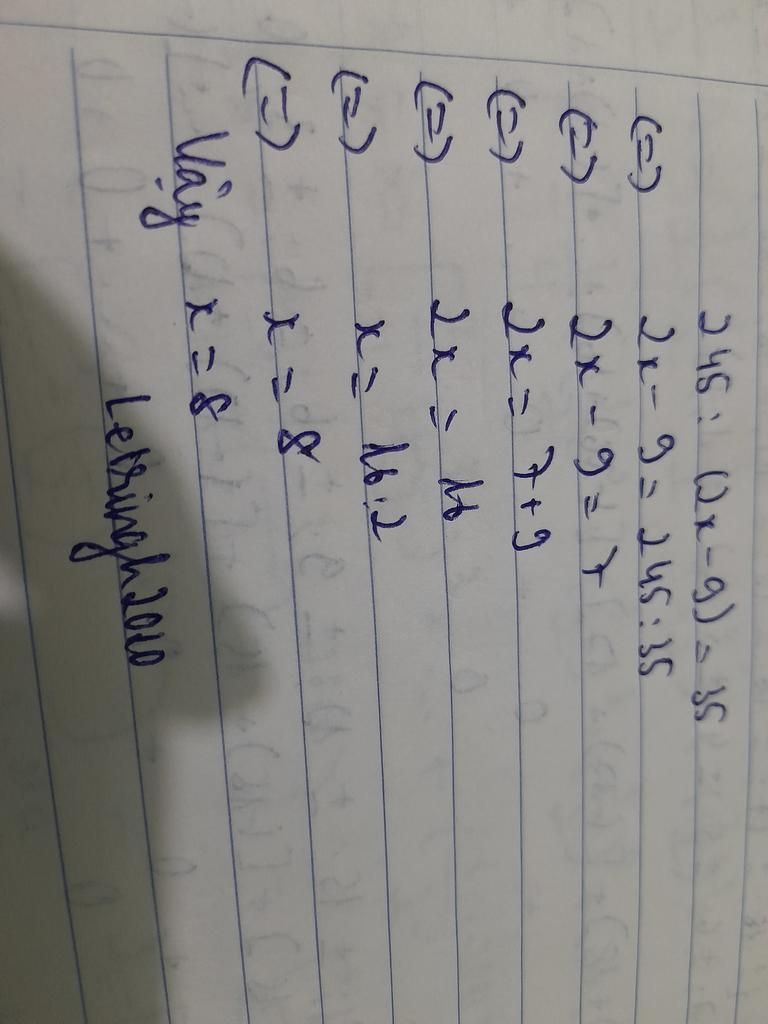 245 : (2x - 9) = 35
(=) 2x - 9 = 245 : 35
(=) 2x - 9 = 7
(=) 2x = 7 + 9
(=) 2x = 16
(=) x = 16 : 2
(=) x = 8
Vậy x = 8
Letringh2010